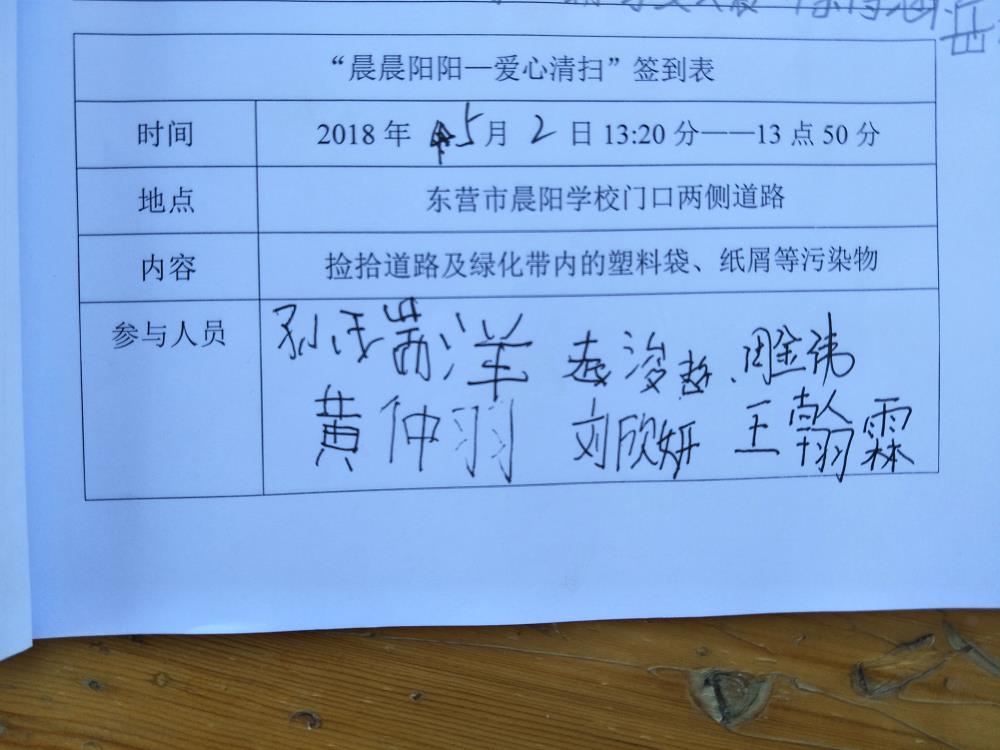 “晨晨阳阳—爱心清扫”签到表
时间 2018 年 5月 2 日 13:20 分——13 点 50 分
地点 东营市晨阳学校门口两侧道路
内容 捡拾道路及绿化带内的塑料袋、纸屑等污染物
参与人员 洋 袁浚哲 周金祎
黄仲羽 刘欣妍 王翰霖